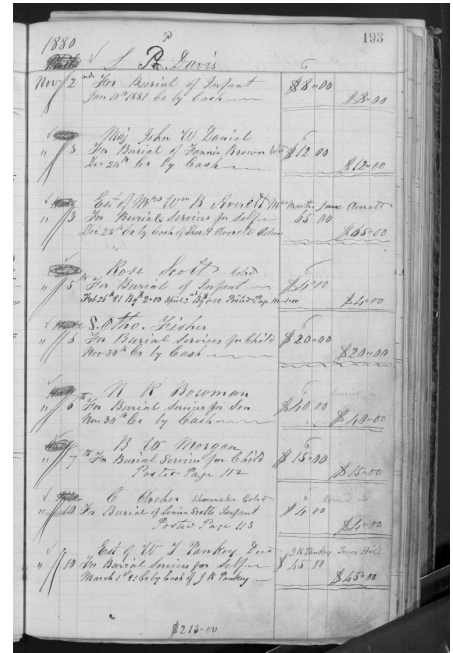 193
1880 P
S P. Davis
Nov 2nd For Burial of Infant $8"00
Jan 10th 1881 Cr by Cash $8"00
Maj John W Daniel
" 3 For Burial of Fannie Brown Cold $12 00
Dec 24th Cr by Cash $12"00
Est of Mrs Wm B Averett Mrs Martha Jane Averett
" 3 For Burial Services for self 65 00
Dec 28th Cr by Cash of Averett $65"00
Rose Scott Cold
" 5th For Burial of Infant $4"00
$4"00
S. Otho. Fisher
" 6 For Burial Services for Child $20"00
Nov 30th Cr by Cash $20"00
N R Bowman
" 6th For Burial Services for Son $40"00
Nov 30th Cr by Cash $40"00
B W Morgan
" 7th For Burial Services for Child $15"00
Posted Page 112 $15"00
C Archer Shoemaker Cold
" 10 For Burial of Louisa Scotts Infant $4 00
Posted Page 113 $4"00
Est of W T Pankey Decd J R Pankey
" 10 For Burial Services for Self $45 00
March 1st 82 Cr by Cash of J R Pankey $45"00
$213"00